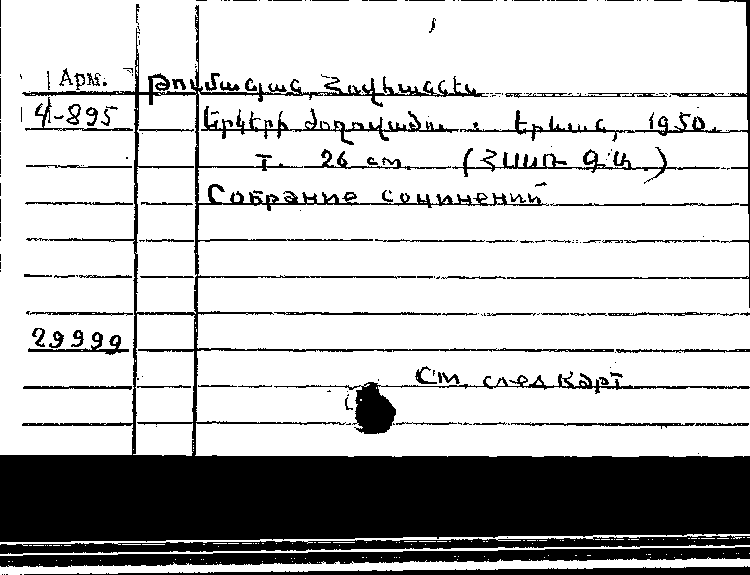 Арм. Թումանյան, Հովհաննես
4-895 Երկերի ժողովածու. Երևան, 1950.
т. 26 см. (ՀՍՍՌ ԳԱ.)
Собрание сочинений
29999
См. след карт